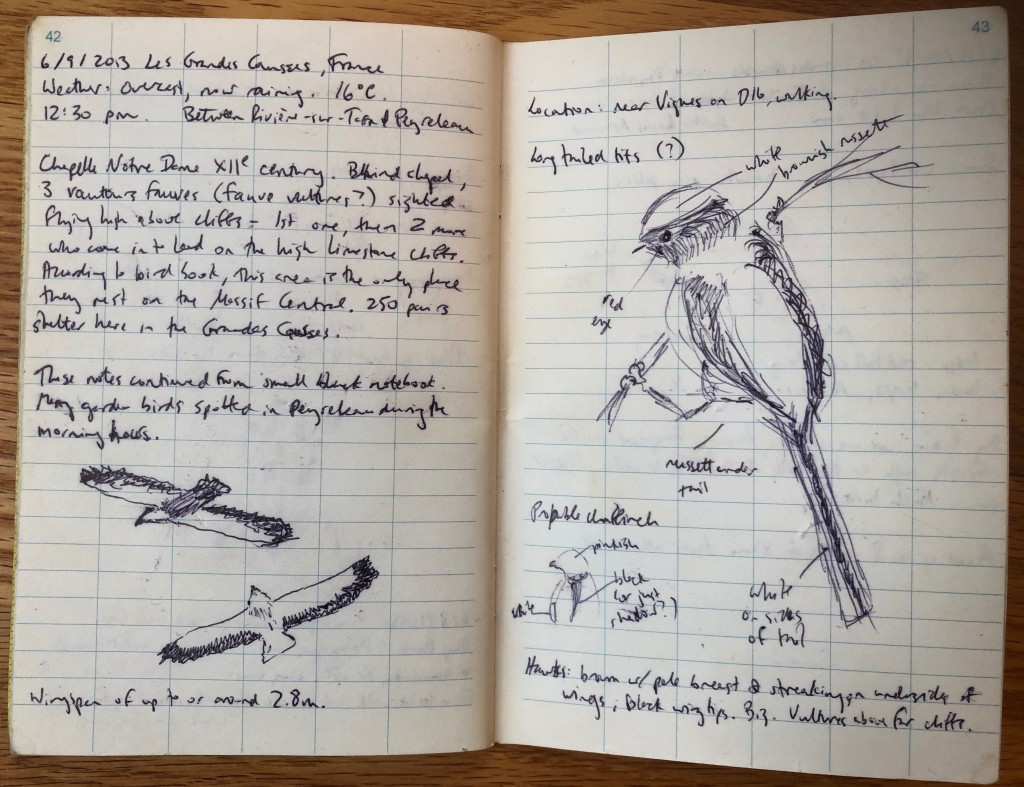 42
6/9/2013 Les Grandes Causses, France
Weather: overcast, now raining. 16°C.
12:30 pm. Between Rivière-sur-Tarn & Peyreleau
Chapelle Notre Dame XIIe century. Behind chapel,
3 vautours fauves (fauve vultures?) sighted
flying high above cliffs - 1st one, then 2 more
who came in to land on the high limestone cliffs.
According to bird book, this area is the only place
they nest on the Massif Central. 250 pairs
shelter here in the Grandes Causses.
These notes continued from small black notebook.
Many garden birds spotted in Peyreleau during the
morning hours.
Wingspan of up to or around 2.8m.
43
Location: near Vignes on D16, walking.
Long tailed tits (?)
white
brownish russett
red
eye
russett under
tail
Probable chaffinch
pinkish
black
(or just
shadow?)
white
white
on sides
of tail
Hawks: brown w/ pale breast & streaking on underside of
wings, black wing tips. Big. Vultures above far cliffs.